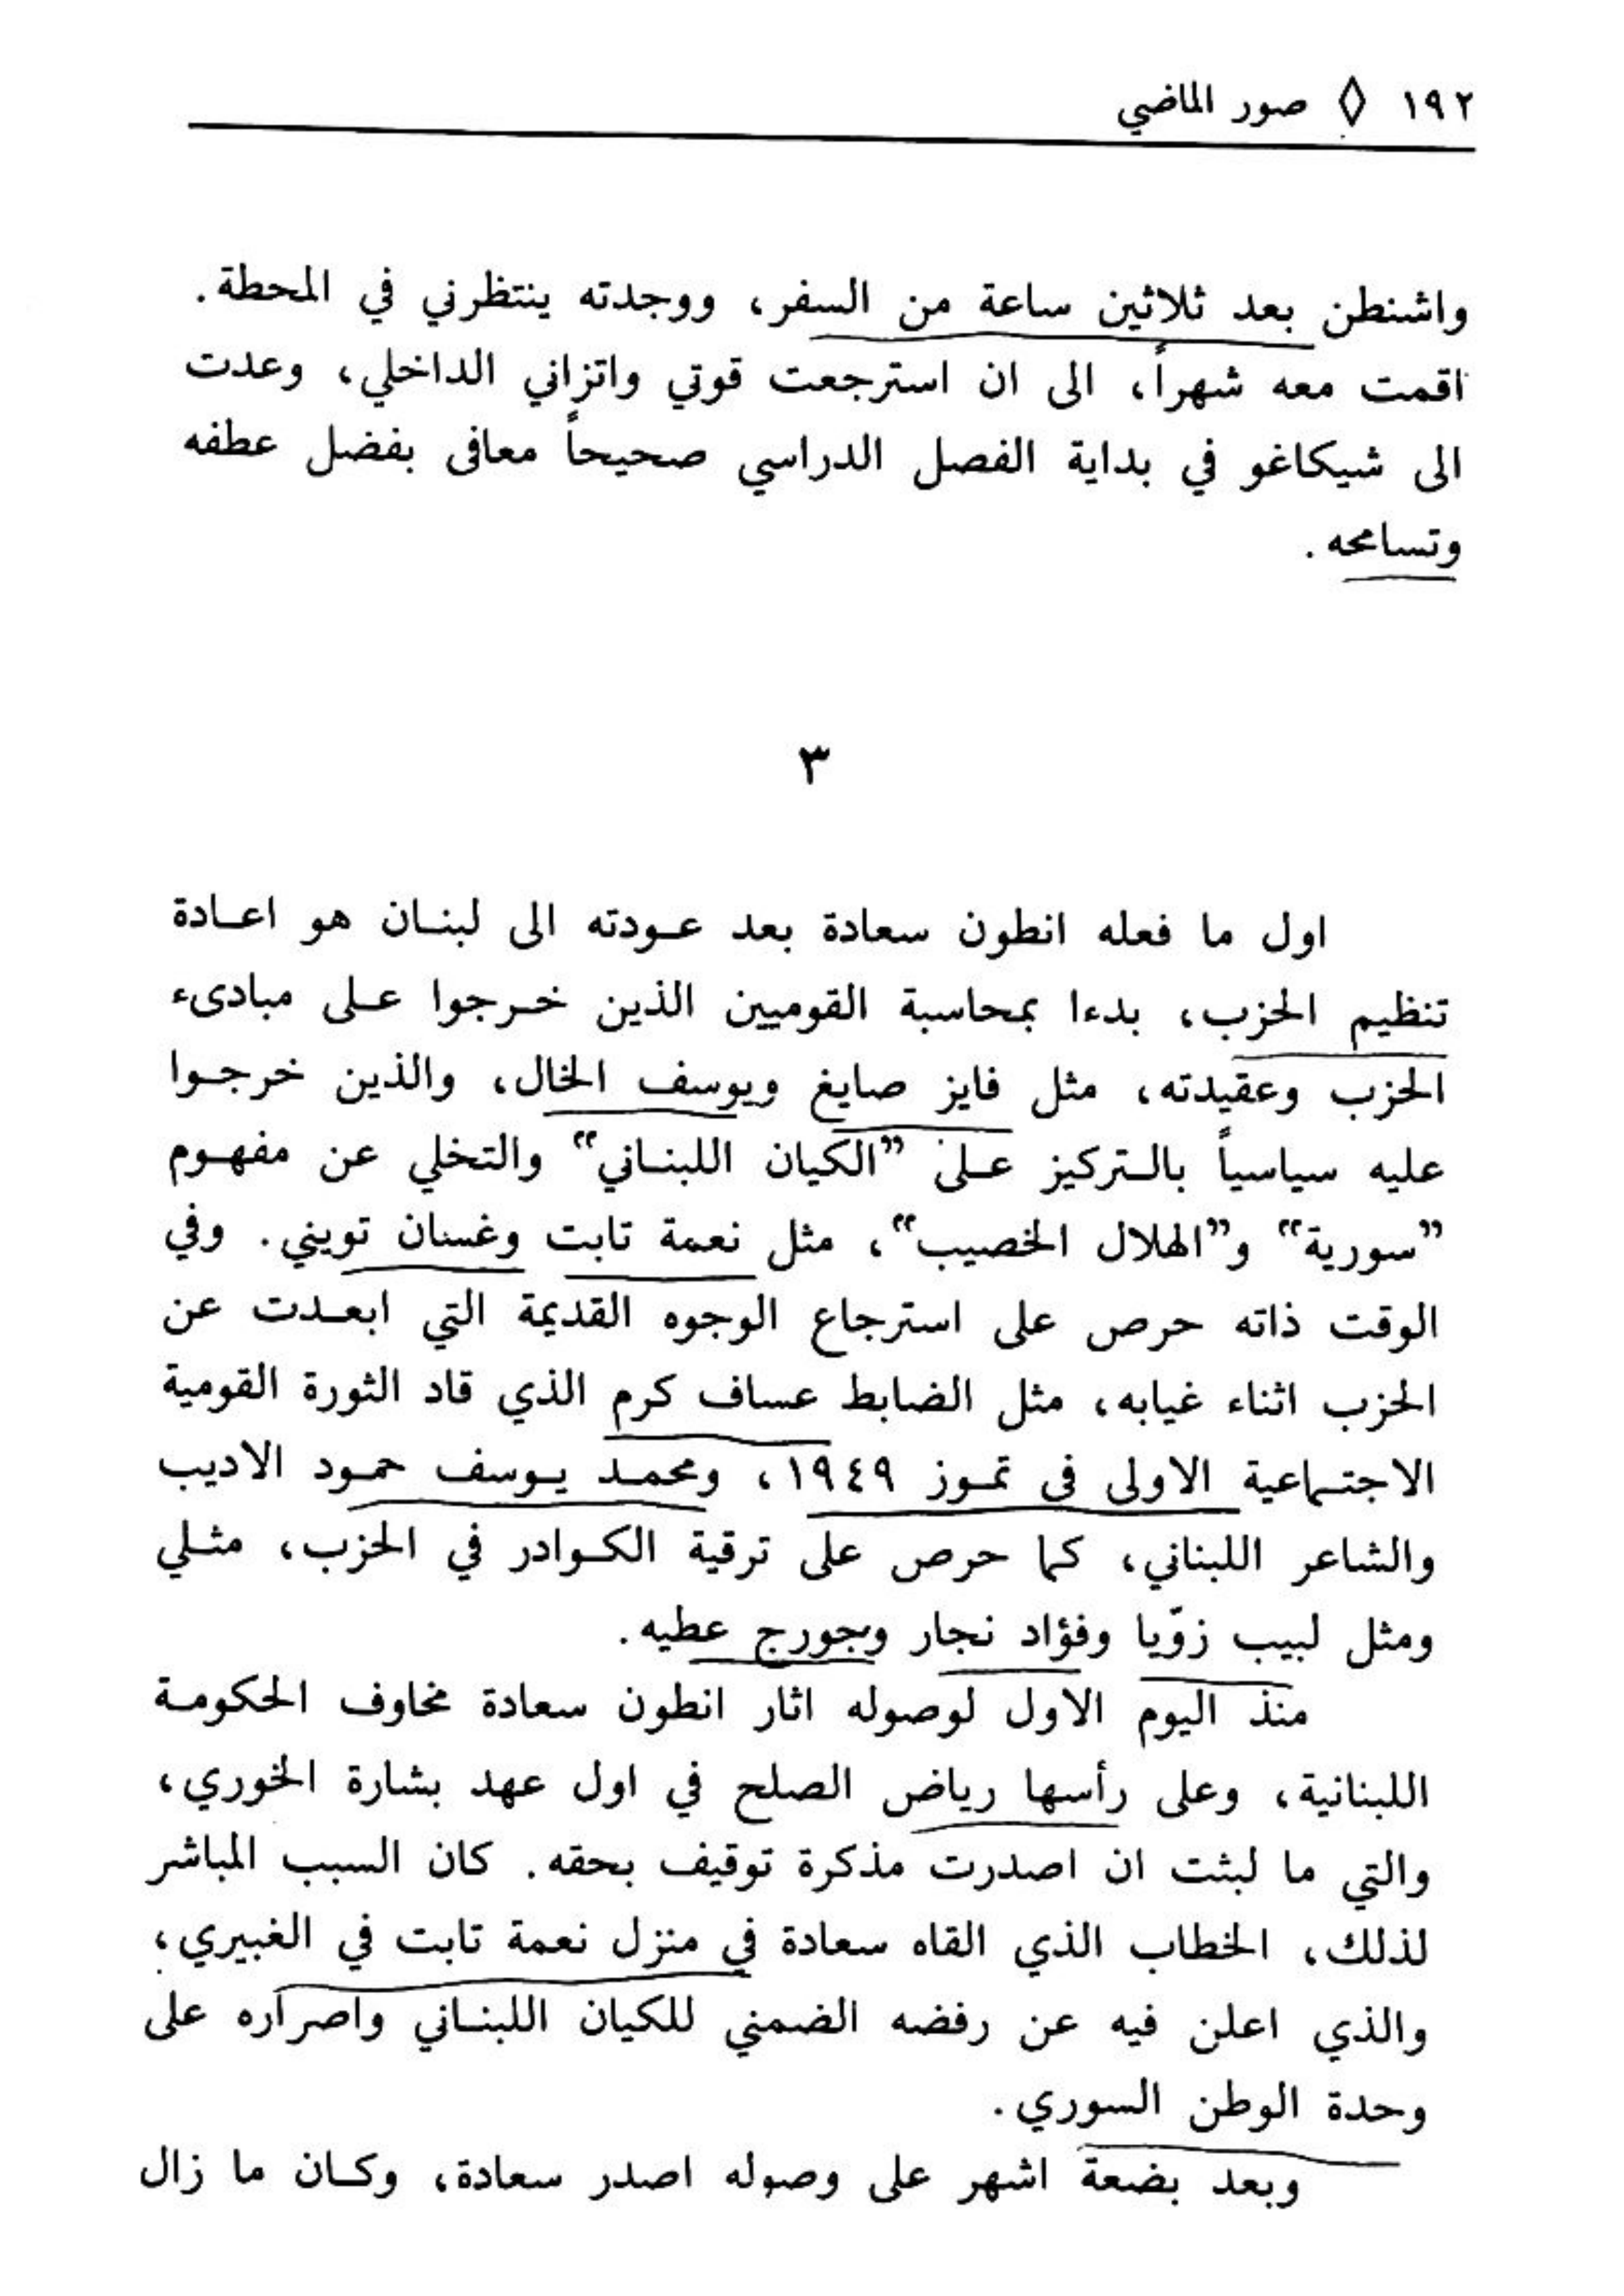 ١٩٢ ◊ صور الماضي
واشنطن بعد ثلاثين ساعة من السفر، ووجدته ينتظرني في المحطة.
اقمت معه شهراً، الى ان استرجعت قوتي واتزاني الداخلي، وعدت
الى شيكاغو في بداية الفصل الدراسي صحيحاً معافى بفضل عطفه
وتسامحه.
٣
اول ما فعله انطون سعادة بعد عـودته الى لبنـان هو اعـادة
تنظيم الحزب، بدءا بمحاسبة القوميين الذين خـرجوا عـلى مبادىء
الحزب وعقيدته، مثل فايز صايغ ويوسف الخال، والذين خرجـوا
عليه سياسياً بالـتركيز عـلى ”الكيان اللبنـاني“ والتخلي عن مفهـوم
”سورية“ و”الهلال الخصيب“، مثل نعمة تابت وغسان تويني. وفي
الوقت ذاته حرص على استرجاع الوجوه القديمة التي ابعـدت عن
الحزب اثناء غيابه، مثل الضابط عساف كرم الذي قاد الثورة القومية
الاجتـماعية الاولى في تمـوز ١٩٤٩، ومحمـد يـوسف حمـود الاديب
والشاعر اللبناني، كما حرص على ترقية الكـوادر في الحزب، مثـلي
ومثل لبيب زوّيا وفؤاد نجار وجورج عطيه.
منذ اليوم الاول لوصوله اثار انطون سعادة مخاوف الحكومـة
اللبنانية، وعلى رأسها رياض الصلح في اول عهد بشارة الخوري،
والتي ما لبثت ان اصدرت مذكرة توقيف بحقه. كان السبب المباشر
لذلك، الخطاب الذي القاه سعادة في منزل نعمة تابت في الغبيري،
والذي اعلن فيه عن رفضه الضمني للكيان اللبنـاني واصراره على
وحدة الوطن السوري.
وبعد بضعة اشهر على وصوله اصدر سعادة، وكـان ما زال